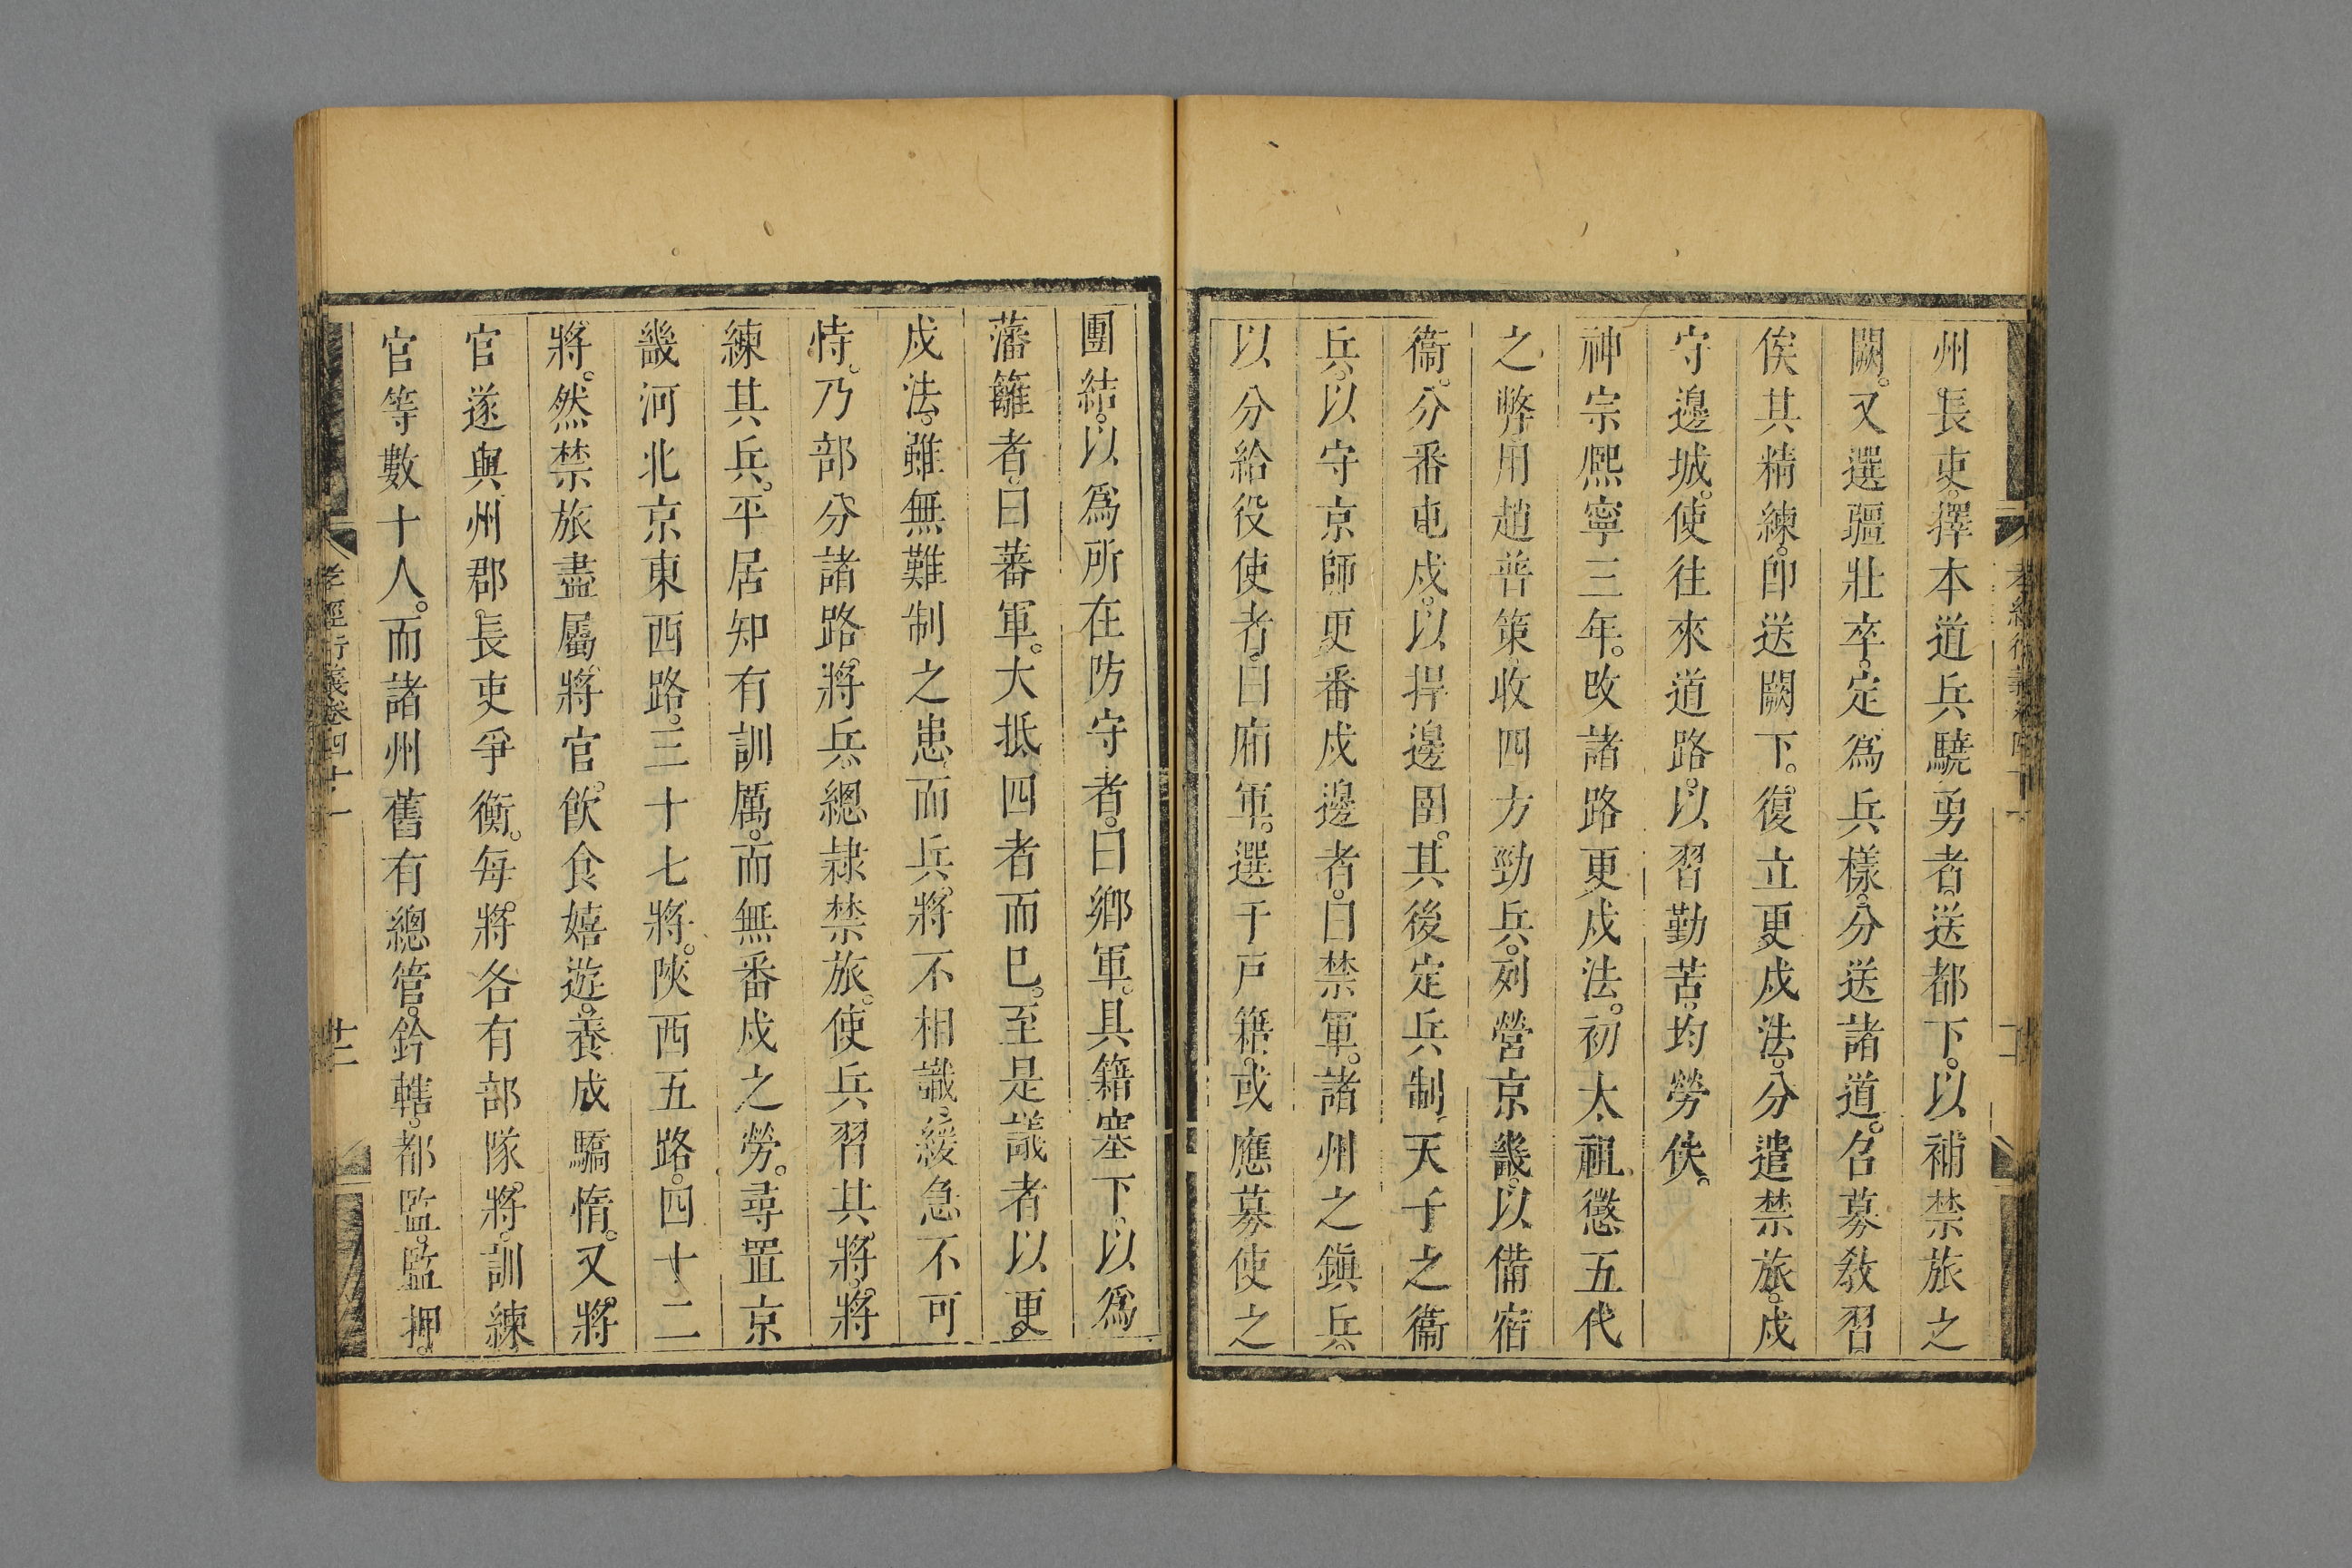 州長吏。擇本道兵驍勇者。送都下。以補禁旅之
闕。又選彊壯卒。定爲兵樣。分送諸道。召募敎習
俟其精練。卽送闕下。復立更戍法。分遣禁旅。戍
守邊城。使往來道路。以習勤苦。均勞佚。
神宗熙寧三年。改諸路更戍法。初太祖懲五代
之弊。用趙普策。收四方勁兵。列營京畿。以備宿
衞。分番屯戍。以捍邊圉。其後定兵制。天子之衞
兵。以守京師。更番戍邊者。曰禁軍。諸州之鎭兵。
以分給役使者。曰廂軍。選于戸籍。或應募。使之
團結。以爲所在防守者。曰鄉軍。具籍塞下。以爲
藩籬者。曰蕃軍。大抵四者而已。至是議者以更
戍法。雖無難制之患。而兵將不相識。緩急不可
恃。乃部分諸路將兵。總隷禁旅。使兵習其將。將
練其兵。平居知有訓厲。而無番戍之勞。尋置京
畿河北京東西路。三十七將。陝西五路。四十二
將。然禁旅盡屬將官。飮食嬉遊。養成驕惰。又將
官遂與州郡長吏爭衡。每將各有部隊。將訓練
官等數十人。而諸州舊有總管。鈐轄。都監。監押。
孝經衍義卷四十一
廿二